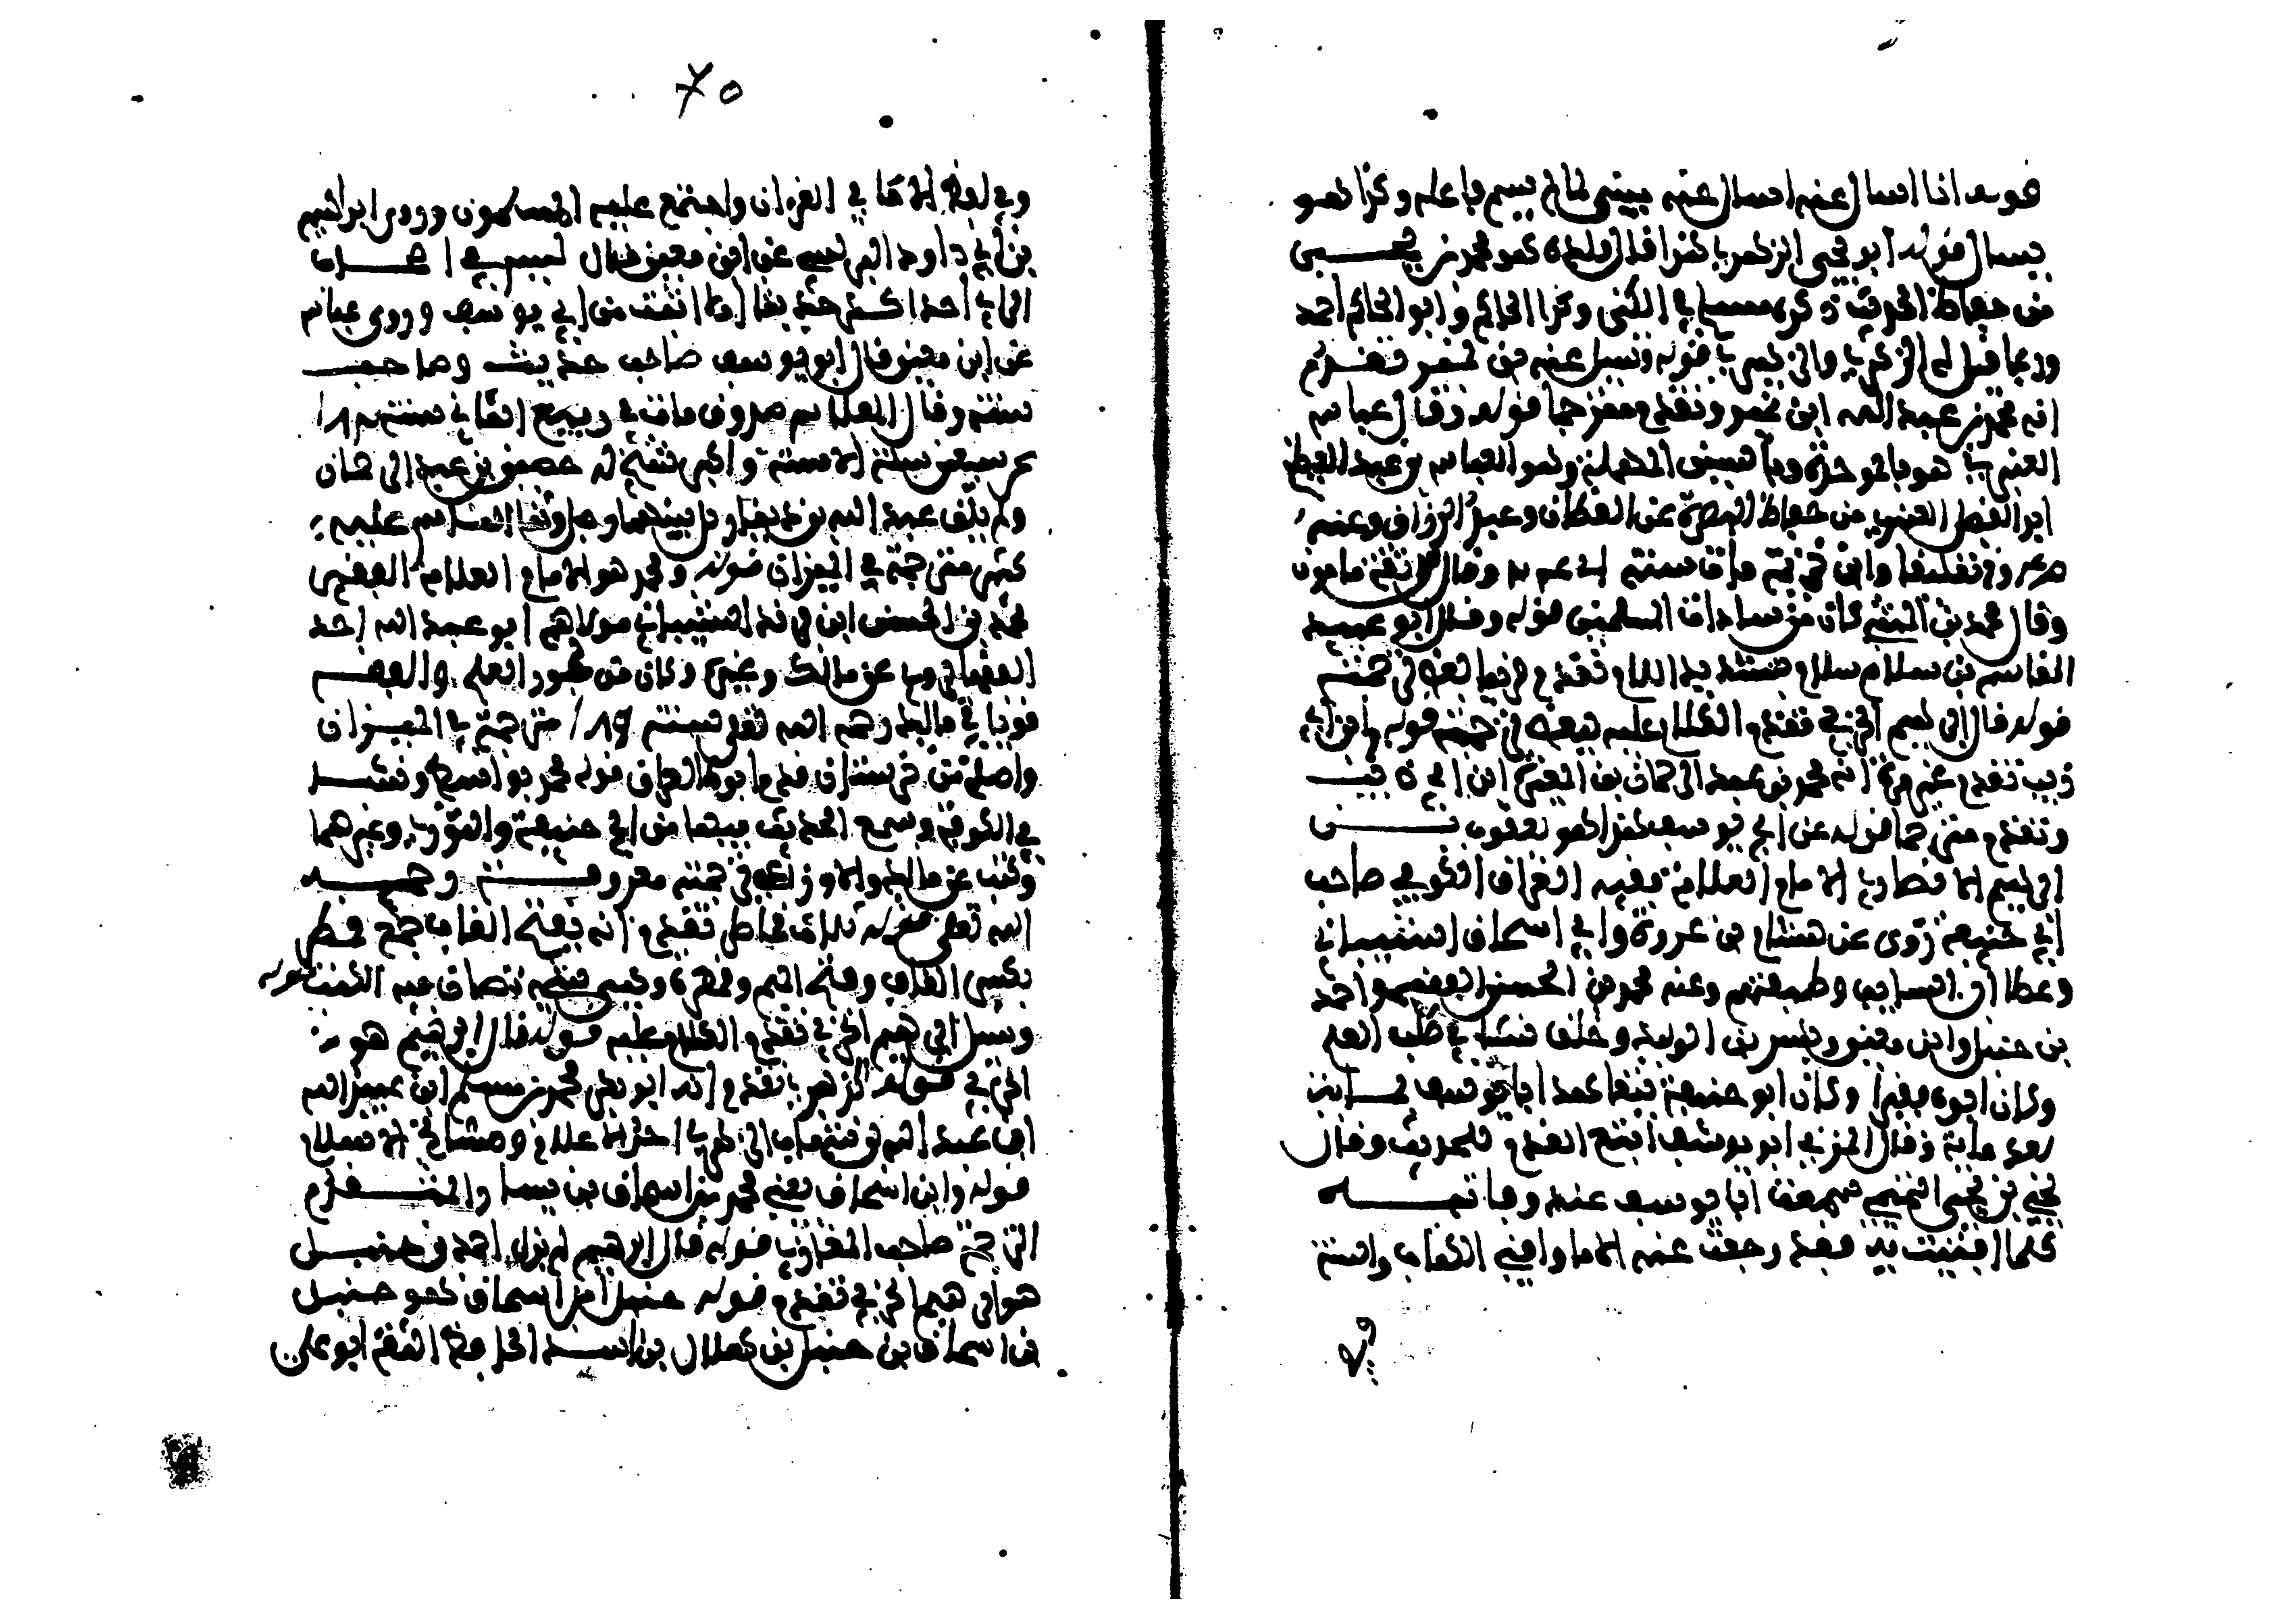 قوله انا اسال عنه اسال عنه مبني لما لم يسم فاعله وكذا هو
يسال قوله ابو يحيى الزهريا كذا قال ولده هو محمد بن يحيى
من حفاظ الحديث ذكره مسلم في الكنى وكذا الحاكم وابو الحاكم احمد
وربما قيل له الزكريا والزهريا قوله وسيل عنه من لمقر تقدم
انه محمد بن عبد الله ابن نمير وتقدم مترجما قوله وقال عباس
العنبري هو بالموحدة وبالسين المهملة وهو العباس بن عبد العظيم
ابو الفضل العنبري من حفاظ البصرة عن القطان وعبد الرزاق وعنه
م عه وخ تعليقا وابن خزيمة مات سنة وقال س ثقة مامون
وقال محمد بن المثنى كان من سادات المسلمين قوله وقال ابو عبيد
القاسم بن سلام سلام بتشديد اللام تقدم مرتين
قوله قال ابراهيم الحربي تقدم الكلام عليه بعض ترجمته قوله يا ابن ابي
ذيب تقدم غير مرة انه محمد بن عبد الرحمان بن المغيرة ابن ابي ذيب
وتقدم مترجما قوله عن ابي يوسف هذا هو يعقوب بن
ابراهيم الانصاري الامام العلامة فقيه العراق الكوفي صاحب
ابي حنيفة روى عن هشام بن عروة وابي اسحاق الشيباني
وعطا ابن السايب وطبقتهم وعنه محمد بن الحسن الفقيه واحمد
بن حنبل وابن معين وبشر بن الوليد وخلق نشا في طلب العلم
وكان ابوه فقيرا وكان ابو حنيفة يتعاهد ابا يوسف بمائة
بعد مائة وقال المزني ابو يوسف اتبع القوم للحديث وقال
يحيى بن يحيى التميمي سمعت ابا يوسف عند وفاته
كلما افتيت به فقد رجعت عنه الا ما وافق الكتاب والسنة
وفي
70
وفي لفظ الا ما في القرءان واجتمع عليه المسلمون وروى ابراهيم
بن ابي داود البرلسي عن ابن معين قال ليس في اصحاب
الراي احد اكثر حديثا ولا اثبت من ابي يوسف وروى عباس
عن ابن معين قال ابو يوسف صاحب حديث وصاحب
سنة وقال الفلاس صدوق مات في ربيع الثاني سنة
عن سبعين سنة الا سنة واكبر شيخ له حصين بن عبد الرحمان
ولم يلق عبد الله بن دينار بينهما وهو وثنا الناس عليه
كثير ترجمته في الميزان قوله ومحمد هو الامام العلامة الفقيه
محمد بن الحسن ابن فرقد الشيباني مولاهم ابو عبد الله احد
الفقها روى عن مالك وغيره وكان من بحور العلم والفقه
قويا في مالك رحمه الله توفي سنة ترجمته في الميزان
واصله من حرستا قدم ابوه العراق فولد محمد بواسط ونشا
في الكوفة وسمع الحديث بها من ابي حنيفة والثوري وغيرهما
وكتب عن مالك والاوزاعي ترجمته معروفة رحمه
الله تعلى قوله ثلاث قماطر تقدم انه بفتح القاف جمع قمطر
بكسر القاف وفتح الميم وقمطرة وهي ما يصان فيه الكتب قوله
وسيل ابراهيم الحربي تقدم الكلام عليه قوله قال ابراهيم هو
الحربي قوله الزهريا تقدم انه ابو بكر محمد بن مسلم ابن عبيد الله
ابن عبد الله بن شهاب الزهريا احد الاعلام ومشايخ الاسلام
قوله وابن اسحاق يعني محمد بن اسحاق بن يسار والمتقدم
الترجمة صاحب المغازي قوله قال ابراهيم لم يزل احمد بن حنبل
هو ابراهيم الحربي تقدم قوله حنبل ابن اسحاق هو حنبل
بن اسحاق بن حنبل بن هلال بن اسد الحافظ الثقة ابو علي